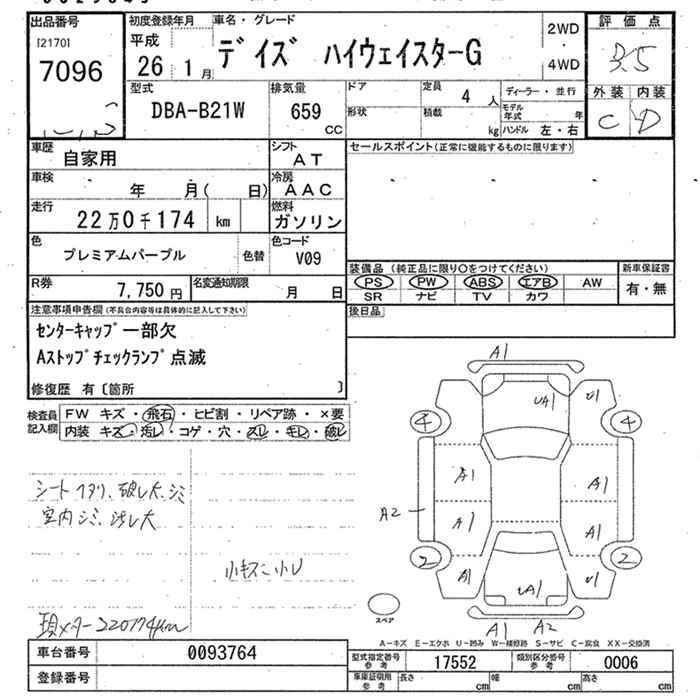 出品番号
[2170]
7096
初度登録年月
平成
26 1月
車名・グレード
デイズ ハイウェイスターG
2WD
・
4WD
評価点
3.5
外装 内装
C D
型式
DBA-B21W
排気量
659
CC
ドア
形状
定員
4 人
積載
kg
ディーラー・並行
モデル年式 年
ハンドル 左・右
車歴
自家用
シフト
AT
車検
年 月( 日)
冷房
AAC
走行
22万0千174 km
燃料
ガソリン
色
プレミアムパープル
色替
色コード
V09
R券
7,750円
名変通知期限
月 日
セールスポイント(正常に機能するものに限ります)
装備品 (純正品に限り○をつけてください)
PS PW ABS エアB AW
SR ナビ TV カワ
新車保証書
有・無
後日品
注意事項申告欄 (不具合内容等は具体的に記入して下さい)
センターキャップ一部欠
Aストップチェックランプ点滅
修復歴 有〔箇所 〕
検査員
記入欄
FW キズ・飛石・ヒビ割・リペア跡・×要
内装 キズ・汚レ・コゲ・穴・スレ・モレ・破レ
シート
破レ大、シミ
室内シミ、汚レ大
小キズ
現メーター220174km
A1
UA1
U1
4
4
A1
A1
A2
A1
A1
2
2
A1
UA1
U1
A1
A2
スペア
A-キズ E-エクボ U-凹み W-補修跡 S-サビ C-腐食 XX-交換済
車台番号
0093764
登録番号
型式指定番号
参考
17552
類別区分番号
参考
0006
車庫証明用
参考
長さ cm
幅 cm
高さ cm